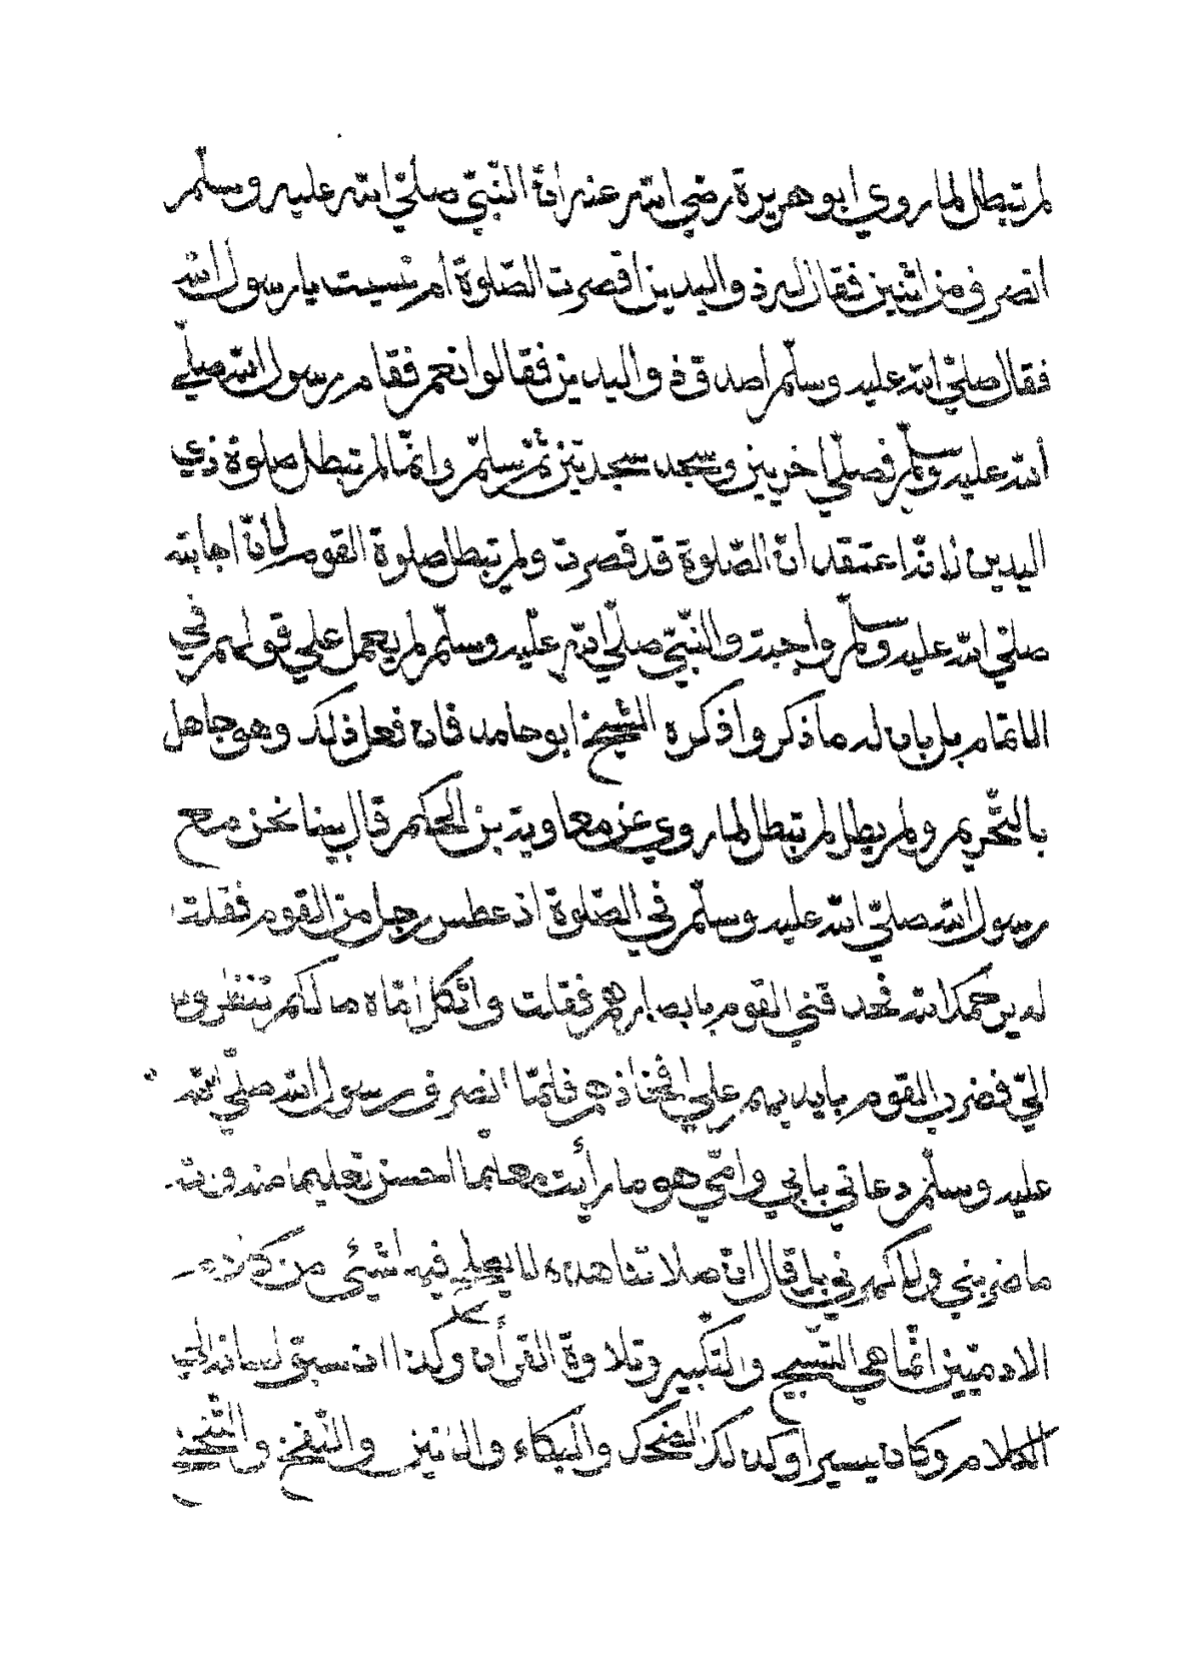 لم تبطل لما روي ابو هريرة رضي الله عنه أنّ النّبيّ صلّي الله عليه وسلّم
انصرف من اثنين فقال له ذو اليدين اقصرت الصّلوة أم نسيت يا رسول الله
فقال صلّي الله عليه وسلّم اصدق ذو اليدين فقالوا نعم فقام رسول الله صلّي
الله عليه وسلّم فصلّي اخريين وسجد سجدتين ثمّ سلّم وانّما لم تبطل صلوة ذي
اليدين لانّه اعتقد انّ الصّلوة قد قصرت ولم تبطل صلوة القوم لانّ اجابته
صلّي الله عليه وسلّم واجبة والنّبيّ صلّي الله عليه وسلّم لم يعمل علي قولهم في
الاتمام بل بان له ما ذكروا ذكره الشّيخ ابو حامد فان فعل ذلك وهو جاهل
بالتّحريم ولم يطل لم تبطل لما روي عن معاوية بن الحكم قال بينا نحن مع
رسول الله صلّي الله عليه وسلّم في الصّلوة اذ عطس رجل من القوم فقلت
له يرحمك الله فحدقني القوم بابصارهم فقلت واثكل امّاه ما لكم تنظرون
اليّ فضرب القوم بايديهم علي افخاذهم فلمّا انصرف رسول الله صلّي الله
عليه وسلّم دعاني بابي وامّي هو ما رأيت معلّما احسن تعليما منه
ما ضربني ولا كهرني بل قال انّ صلاتنا هذه لا يصلح فيها شيئ من كلام
الادميّين انّما هي التّسبيح والتّكبير وتلاوة القرأن وكذا ان سبق لسانه الي
الكلام وكان يسيرا وكذلك الضّحك والبكاء والانين والنّفخ والتّنحنح